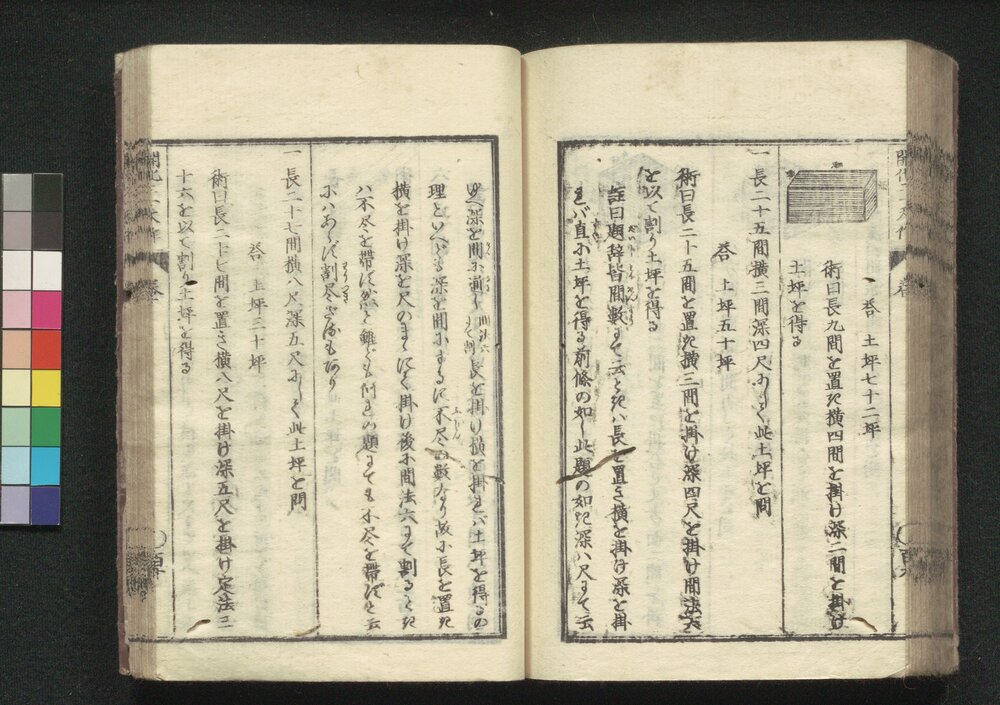 答 土坪七十二坪
術曰長九間を置き横四間を掛け深二間を掛け
土坪を得る
一長二十五間横三間深四尺にして此土坪を問
答 土坪五十坪
術曰長二十五間を置き横三間を掛け深四尺を掛け間法六
を以て割り土坪を得る
註曰題辞皆間数にて云ときハ長を置き横を掛け深を掛
れバ直に土坪を得る前條の如し此題の如き深ハ尺にて云
深を間に直し
長を掛け横を掛れバ土坪を得るの
理といへども深を間にするに不尽の数なり故に長を置き
横を掛け深を尺のまゝにて掛け後に間法六にて割るとき
ハ不尽を帯ず然と雖ども何れの題にても不尽を帯ずと云
にハあらず割尽ざるもあり
一長二十七間横八尺深五尺にして此土坪を問
答 土坪三十坪
術曰長二十七間を置き横八尺を掛け深五尺を掛け定法三
十六を以て割り土坪を得る